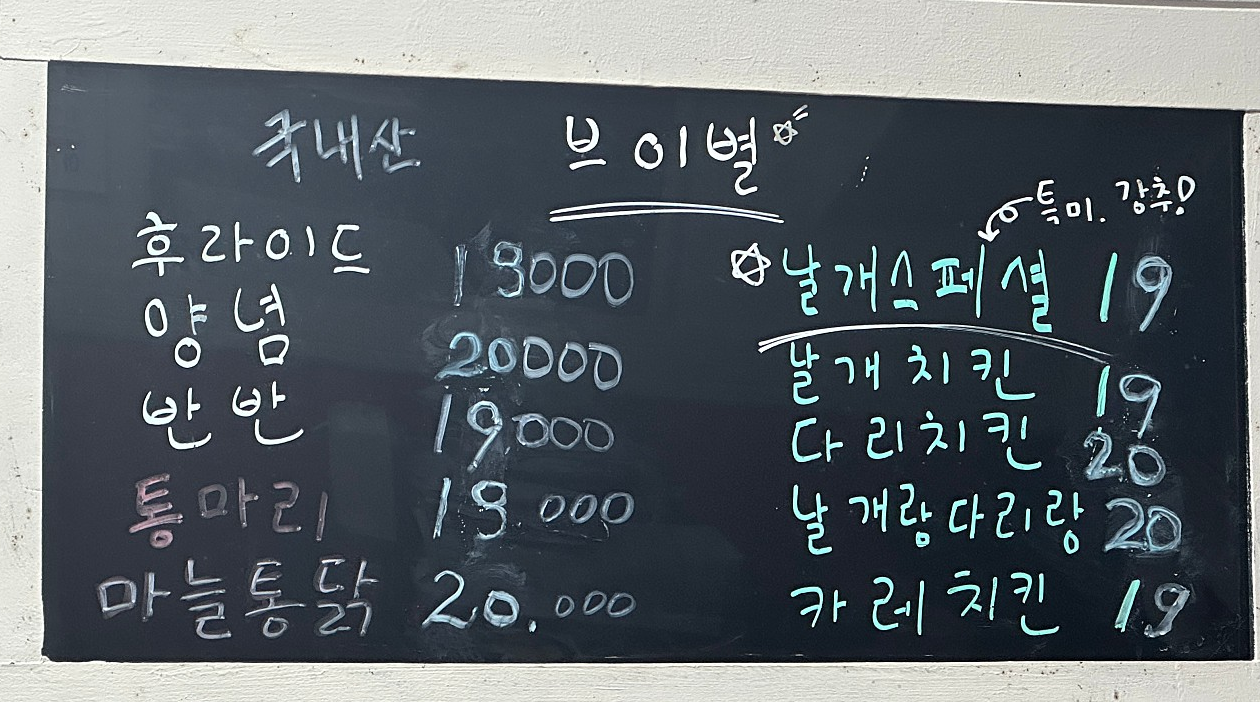 국내산
브이별
후라이드 18000
양념 20000
반반 19,000
통마리 18.000
마늘통닭 20.000
특미. 강추!
날개스페셜 19
날개치킨 19
다리치킨 20
날개랑다리랑 20
카레치킨 19